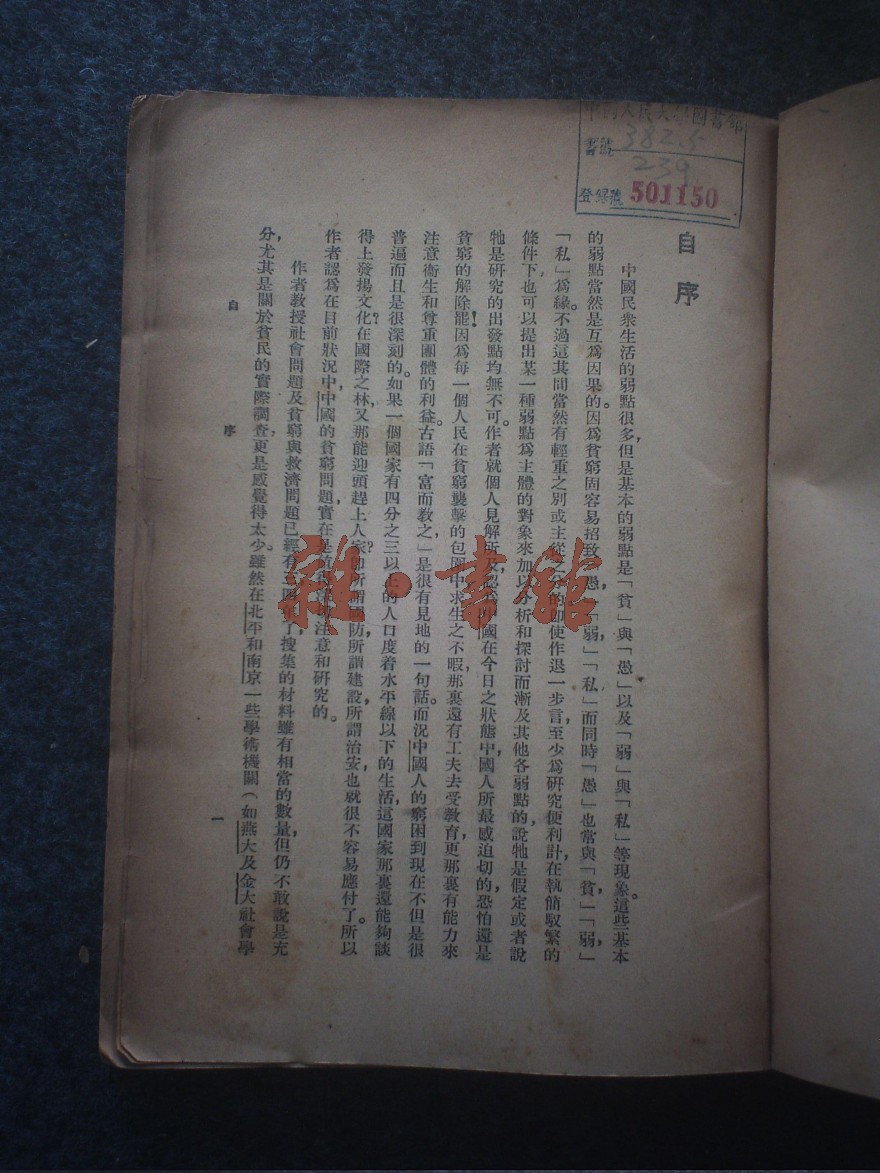 中國人民大學圖書館
書號 382.5
239
登錄號 501150
自序
中國民衆生活的弱點很多，但是基本的弱點是「貧」與「愚」以及「弱」與「私」等現象。這些基本
的弱點當然是互爲因果的。因爲貧窮固容易招致「愚」，「弱」「私」而同時「愚」也常與「貧」，「弱」，
「私」爲緣。不過這其間當然有輕重之別或主從之分的。卽使作退一步言，至少爲研究便利計，在執簡馭繁的
條件下，也可以提出某一種弱點爲主體的對象來加以分析和探討而漸及其他各弱點的說牠是假定或者說
牠是研究的出發點均無不可。作者就個人見解所及，認爲中國在今日之狀態中，國人所最感迫切的，恐怕還是
貧窮的解除罷！因爲每一個人民在貧窮襲擊的包圍中求生之不暇，那裏還有工夫去受教育，更那裏有能力來
注意衞生和尊重團體的利益。古語「富而教之」是很有見地的一句話。而況中國人的窮困到現在不但是很
普遍而且是很深刻的。如果一個國家有四分之三以上的人口度着水平線以下的生活，這國家那裏還能夠談
得上發揚文化在國際之林？又那能迎頭趕上人家？卽所謂國防所謂建設所謂治安也就很不容易應付了。所以
作者認爲在目前狀況中，中國的貧窮問題，實在是注意和研究的。
作者教授社會問題及貧窮與救濟問題已經有年了，搜集的材料雖有相當的數量，但仍不敢說是充
分，尤其是關於貧民的實際調查，更是感覺得太少。雖然在北平和南京一些學術機關（如燕大及金大社會學
自序
一
雜·書館